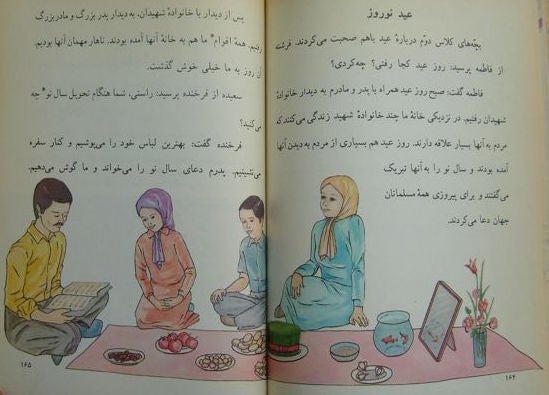 عید نوروز
بچه‌های کلاس دوّم دربارهٔ عید باهم صحبت می‌کردند. فرشته
از فاطمه پرسید: روز عید کجا رفتی؟ چه‌کردی؟
فاطمه گفت: صبح روز عید همراه با پدر و مادرم به دیدار خانوادهٔ
شهیدان رفتیم. در نزدیکی خانهٔ ما چند خانوادهٔ شهید زندگی می‌کنند که
مردم به آنها بسیار علاقه دارند. روز عید هم بسیاری از مردم به دیدن آنها
آمده بودند و سال نو را به آنها تبریک
می‌گفتند و برای پیروزی همهٔ مسلمانان
جهان دعا می‌کردند.
۱۶۴
پس از دیدار با خانوادهٔ شهیدان، به دیدار پدر بزرگ و مادربزرگ
رفتیم. همهٔ اقوام* ما هم به خانهٔ آنها آمده بودند. ناهار مهمان آنها بودیم.
آن روز به ما خیلی خوش گذشت.
سعیده از فرخنده پرسید: راستی، شما هنگام تحویل سال نو* چه
می‌کنید؟
فرخنده گفت: بهترین لباس خود را می‌پوشیم و کنار سفره
می‌نشینیم. پدرم دعای سال نو را می‌خواند و ما گوش می‌دهیم.
۱۶۵